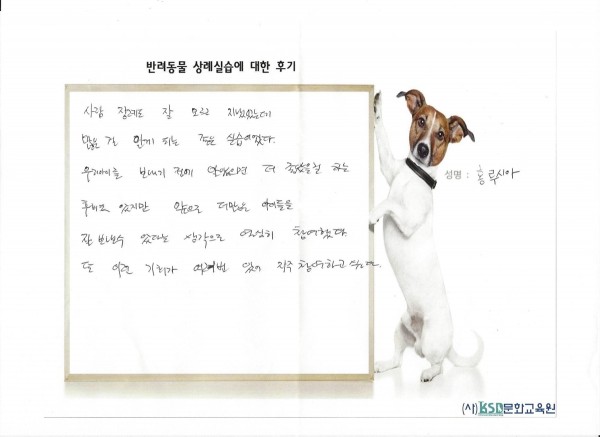 반려동물 상례실습에 대한 후기
사람 장례도 잘 모르고 지냈었는데
많은 걸 알게 되는 좋은 실습이었다.
우리아이를 보내기 전에 알았으면 더 좋았을걸 하는
후회도 있지만 앞으로 더많은 아이들을
잘 보내줄 수 있다는 생각으로 열심히 참여했다
또 이런 기회가 여러번 있어 자주 참여하고 싶다.
성명 : 홍루시아
(사)KSD문화교육원